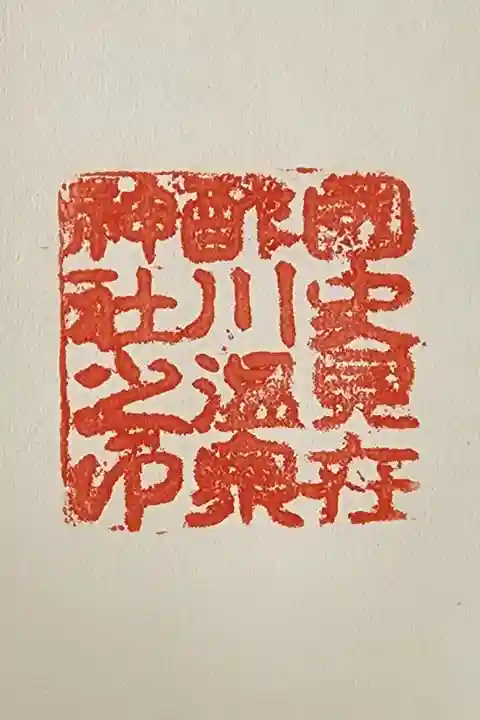 國史見在
酢川温泉
神社之印